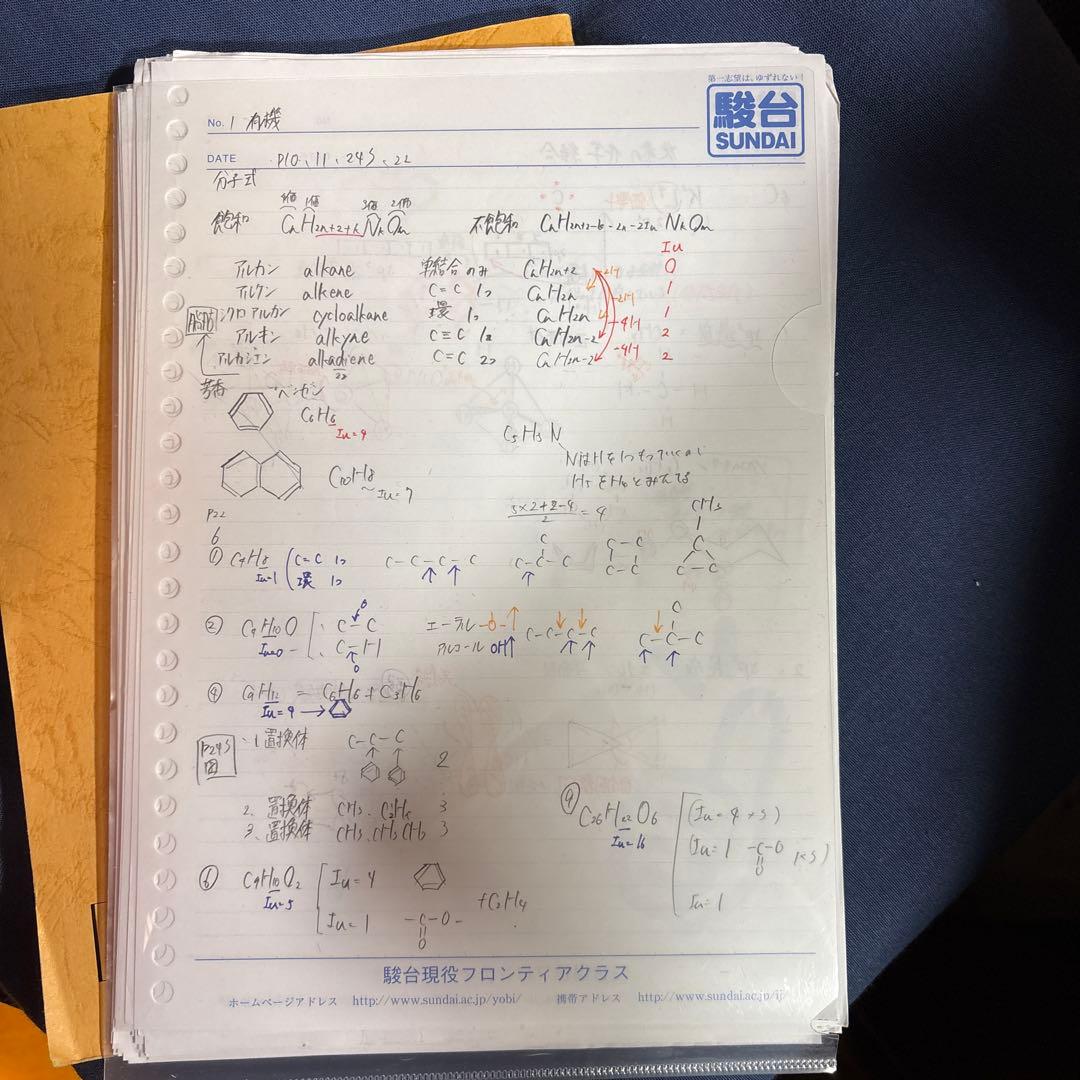 第一志望は、ゆずれない!
駿台
SUNDAI
No. 1 有機
DATE P10、11、24S、22
分子式
4価 1価 3価 2価
飽和 CnH2n+2+kNkOm 不飽和
Iu
アルカン alkane 単結合のみ CnH2n+2 0
アルケン alkene C=C 1つ CnH2n -2H 1
シクロアルカン cycloalkane 環 1つ CnH2n -2H 1
アルキン alkyne C≡C 1つ CnH2n-2 -4H 2
アルカジエン alkadiene C=C 2つ CnH2n-2 -4H 2
脂肪
芳香 ベンゼン
C6H6
Iu=4
C5H5N
NはHを1つもっていくので
C10H8
Iu=7
P22
6
① C4H8 C=C 1つ
Iu=1 環 1つ
C-C-C-C
CH3
② C4H10O
Iu=0
エーテル -O-
アルコール OH
C-C-C-C
④ C9H12 = C6H6 + C3H6
Iu=4 →
P24S
図
1置換体 C-C-C 2
2置換体 CH3、C2H5 3
3置換体 CH3、CH3、CH3 3
⑥ C9H10O2 Iu=4
Iu=5 Iu=1 -C-O- +C2H4
O
⑨ C26H22O6 (Iu=4 ×3)
Iu=16 (Iu=1 -C-O ×3)
O
Iu=1
駿台現役フロンティアクラス
ホームページアドレス http://www.sundai.ac.jp/yobi/ 携帯アドレス http://www.sundai.ac.jp/i/